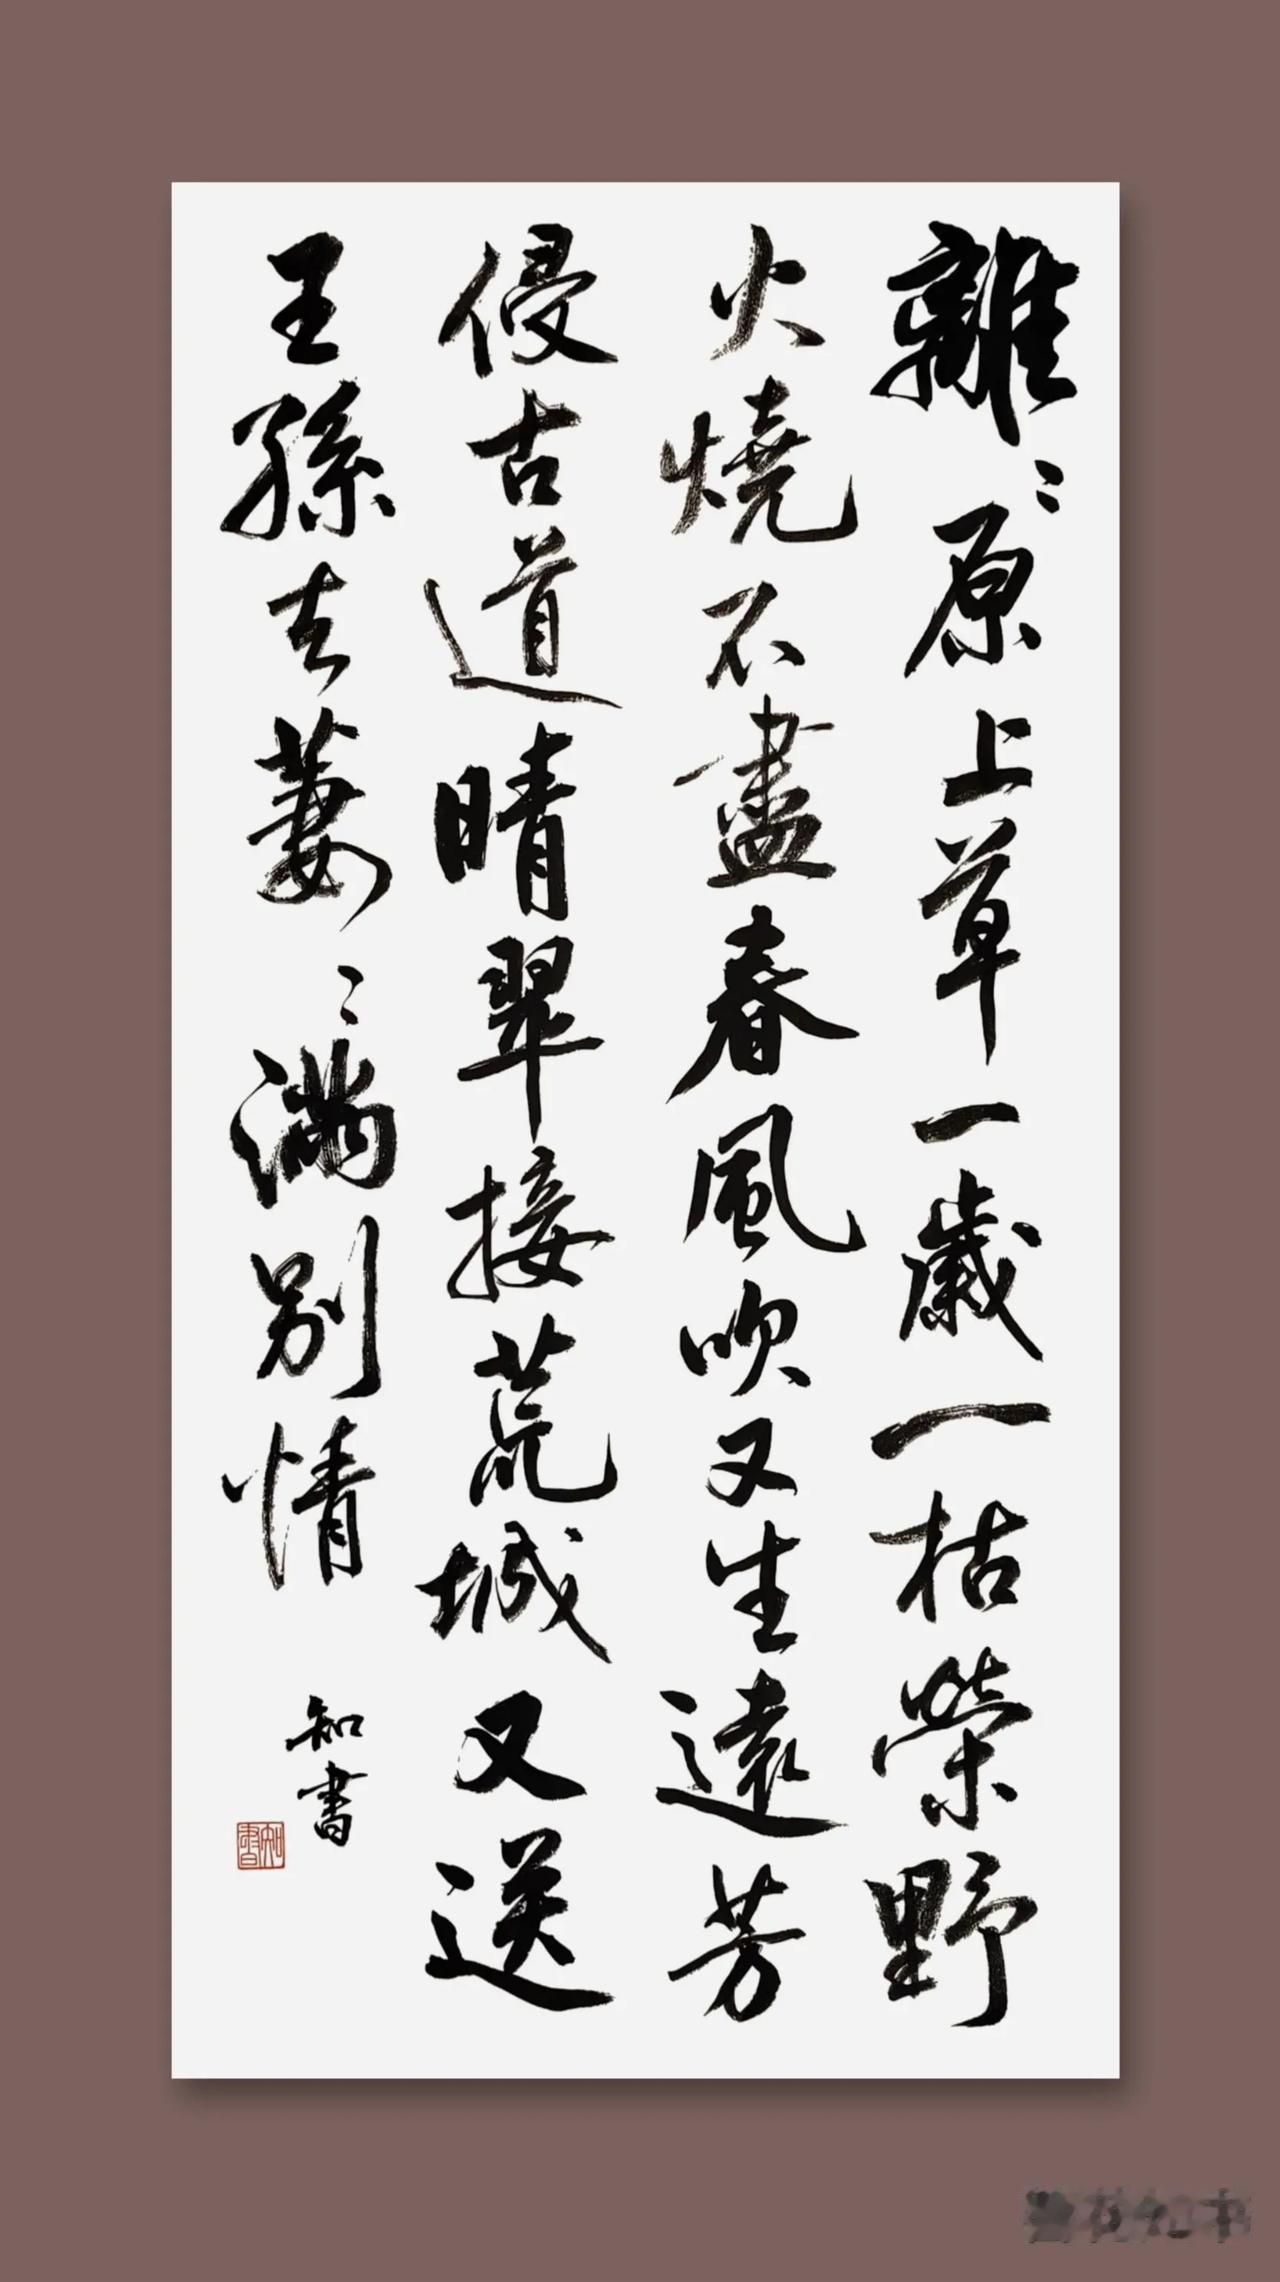 離〻原上草一歲一枯榮野
火燒不盡春風吹又生遠芳
侵古道晴翠接荒城又送
王孫去萋〻滿別情
知書
知書